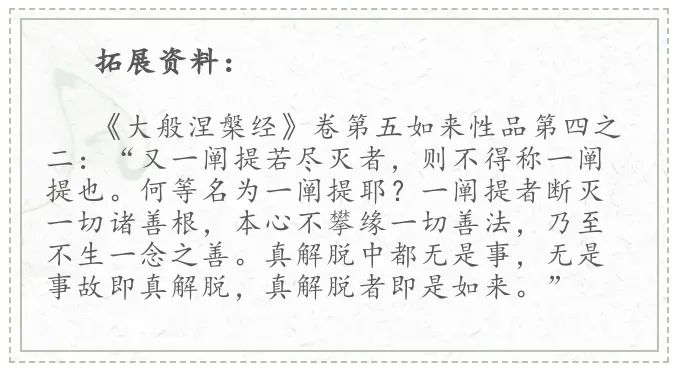 拓展资料：
《大般涅槃经》卷第五如来性品第四之
二：“又一阐提若尽灭者，则不得称一阐
提也。何等名为一阐提耶？一阐提者断灭
一切诸善根，本心不攀缘一切善法，乃至
不生一念之善。真解脱中都无是事，无是
事故即真解脱，真解脱者即是如来。”